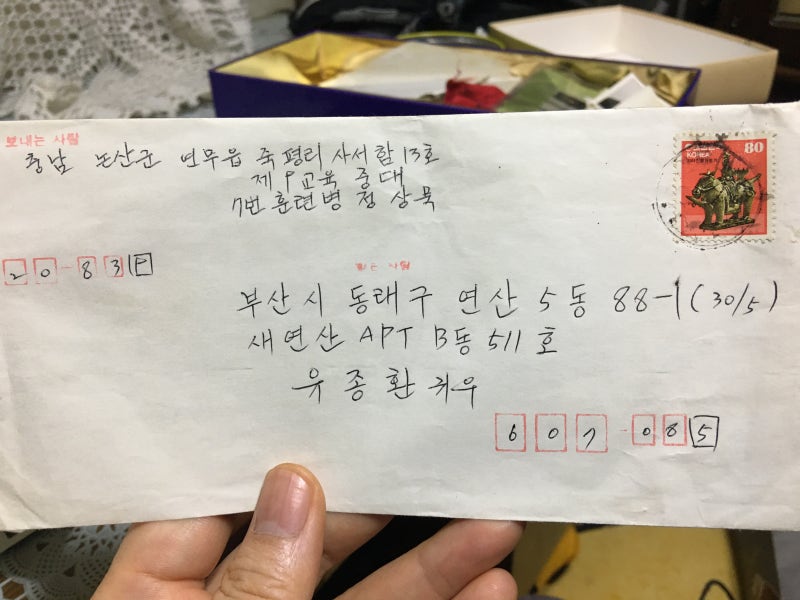 보내는 사람
충남 논산군 연무읍 죽평리 사서함 13호
제 9 교육 중대
7번 훈련병 정상묵
80
KOREA
20-83
받는 사람
부산시 동래구 연산 5동 88-1 (30/5)
새연산 APT B동 511호
유종환 귀우
607-085